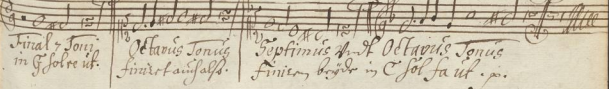 Final 7 Toni
in G solre ut.
Octavus Tonus
finiret auch also.
Septimus vndt Octavus Tonus
finiren beÿde in C sol fa ut. .p.